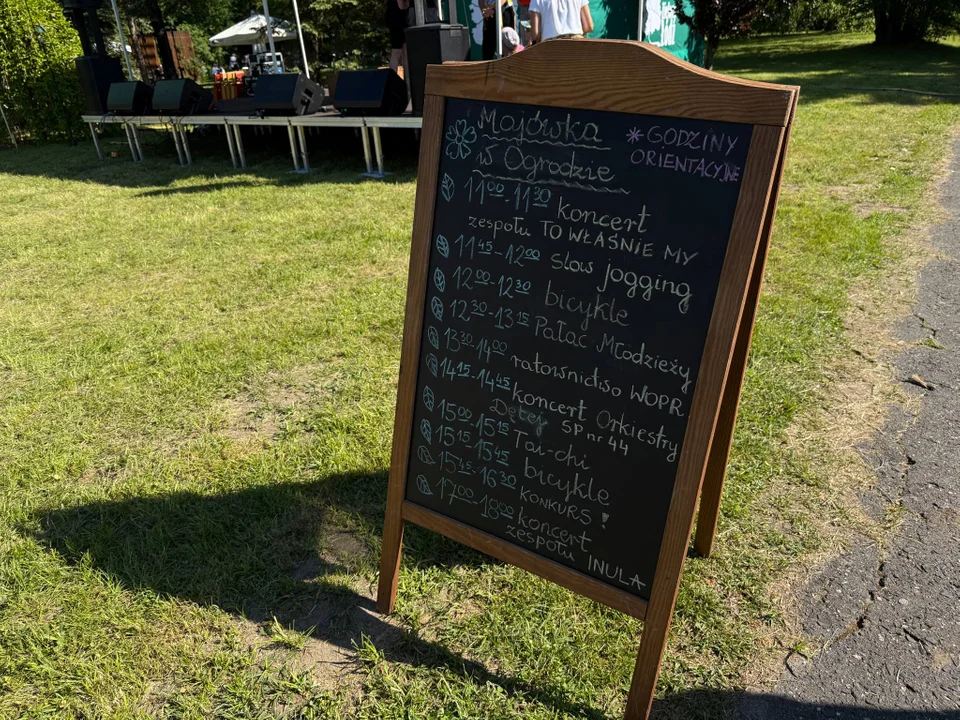 Majówka
w Ogrodzie
* GODZINY
ORIENTACYJNE
11⁰⁰-11³⁰ koncert
zespołu TO WŁAŚNIE MY
11⁴⁵-12⁰⁰ slow jogging
12⁰⁰-12³⁰ bicykle
12³⁰-13¹⁵ Pałac Młodzieży
13³⁰-14⁰⁰ ratownictwo WOPR
14¹⁵-14⁴⁵ koncert Orkiestry
Dętej SP nr 44
15⁰⁰-15¹⁵ Tai-chi
15¹⁵-15⁴⁵ bicykle
15⁴⁵-16³⁰ KONKURS!
17⁰⁰-18⁰⁰ koncert
zespołu INULA